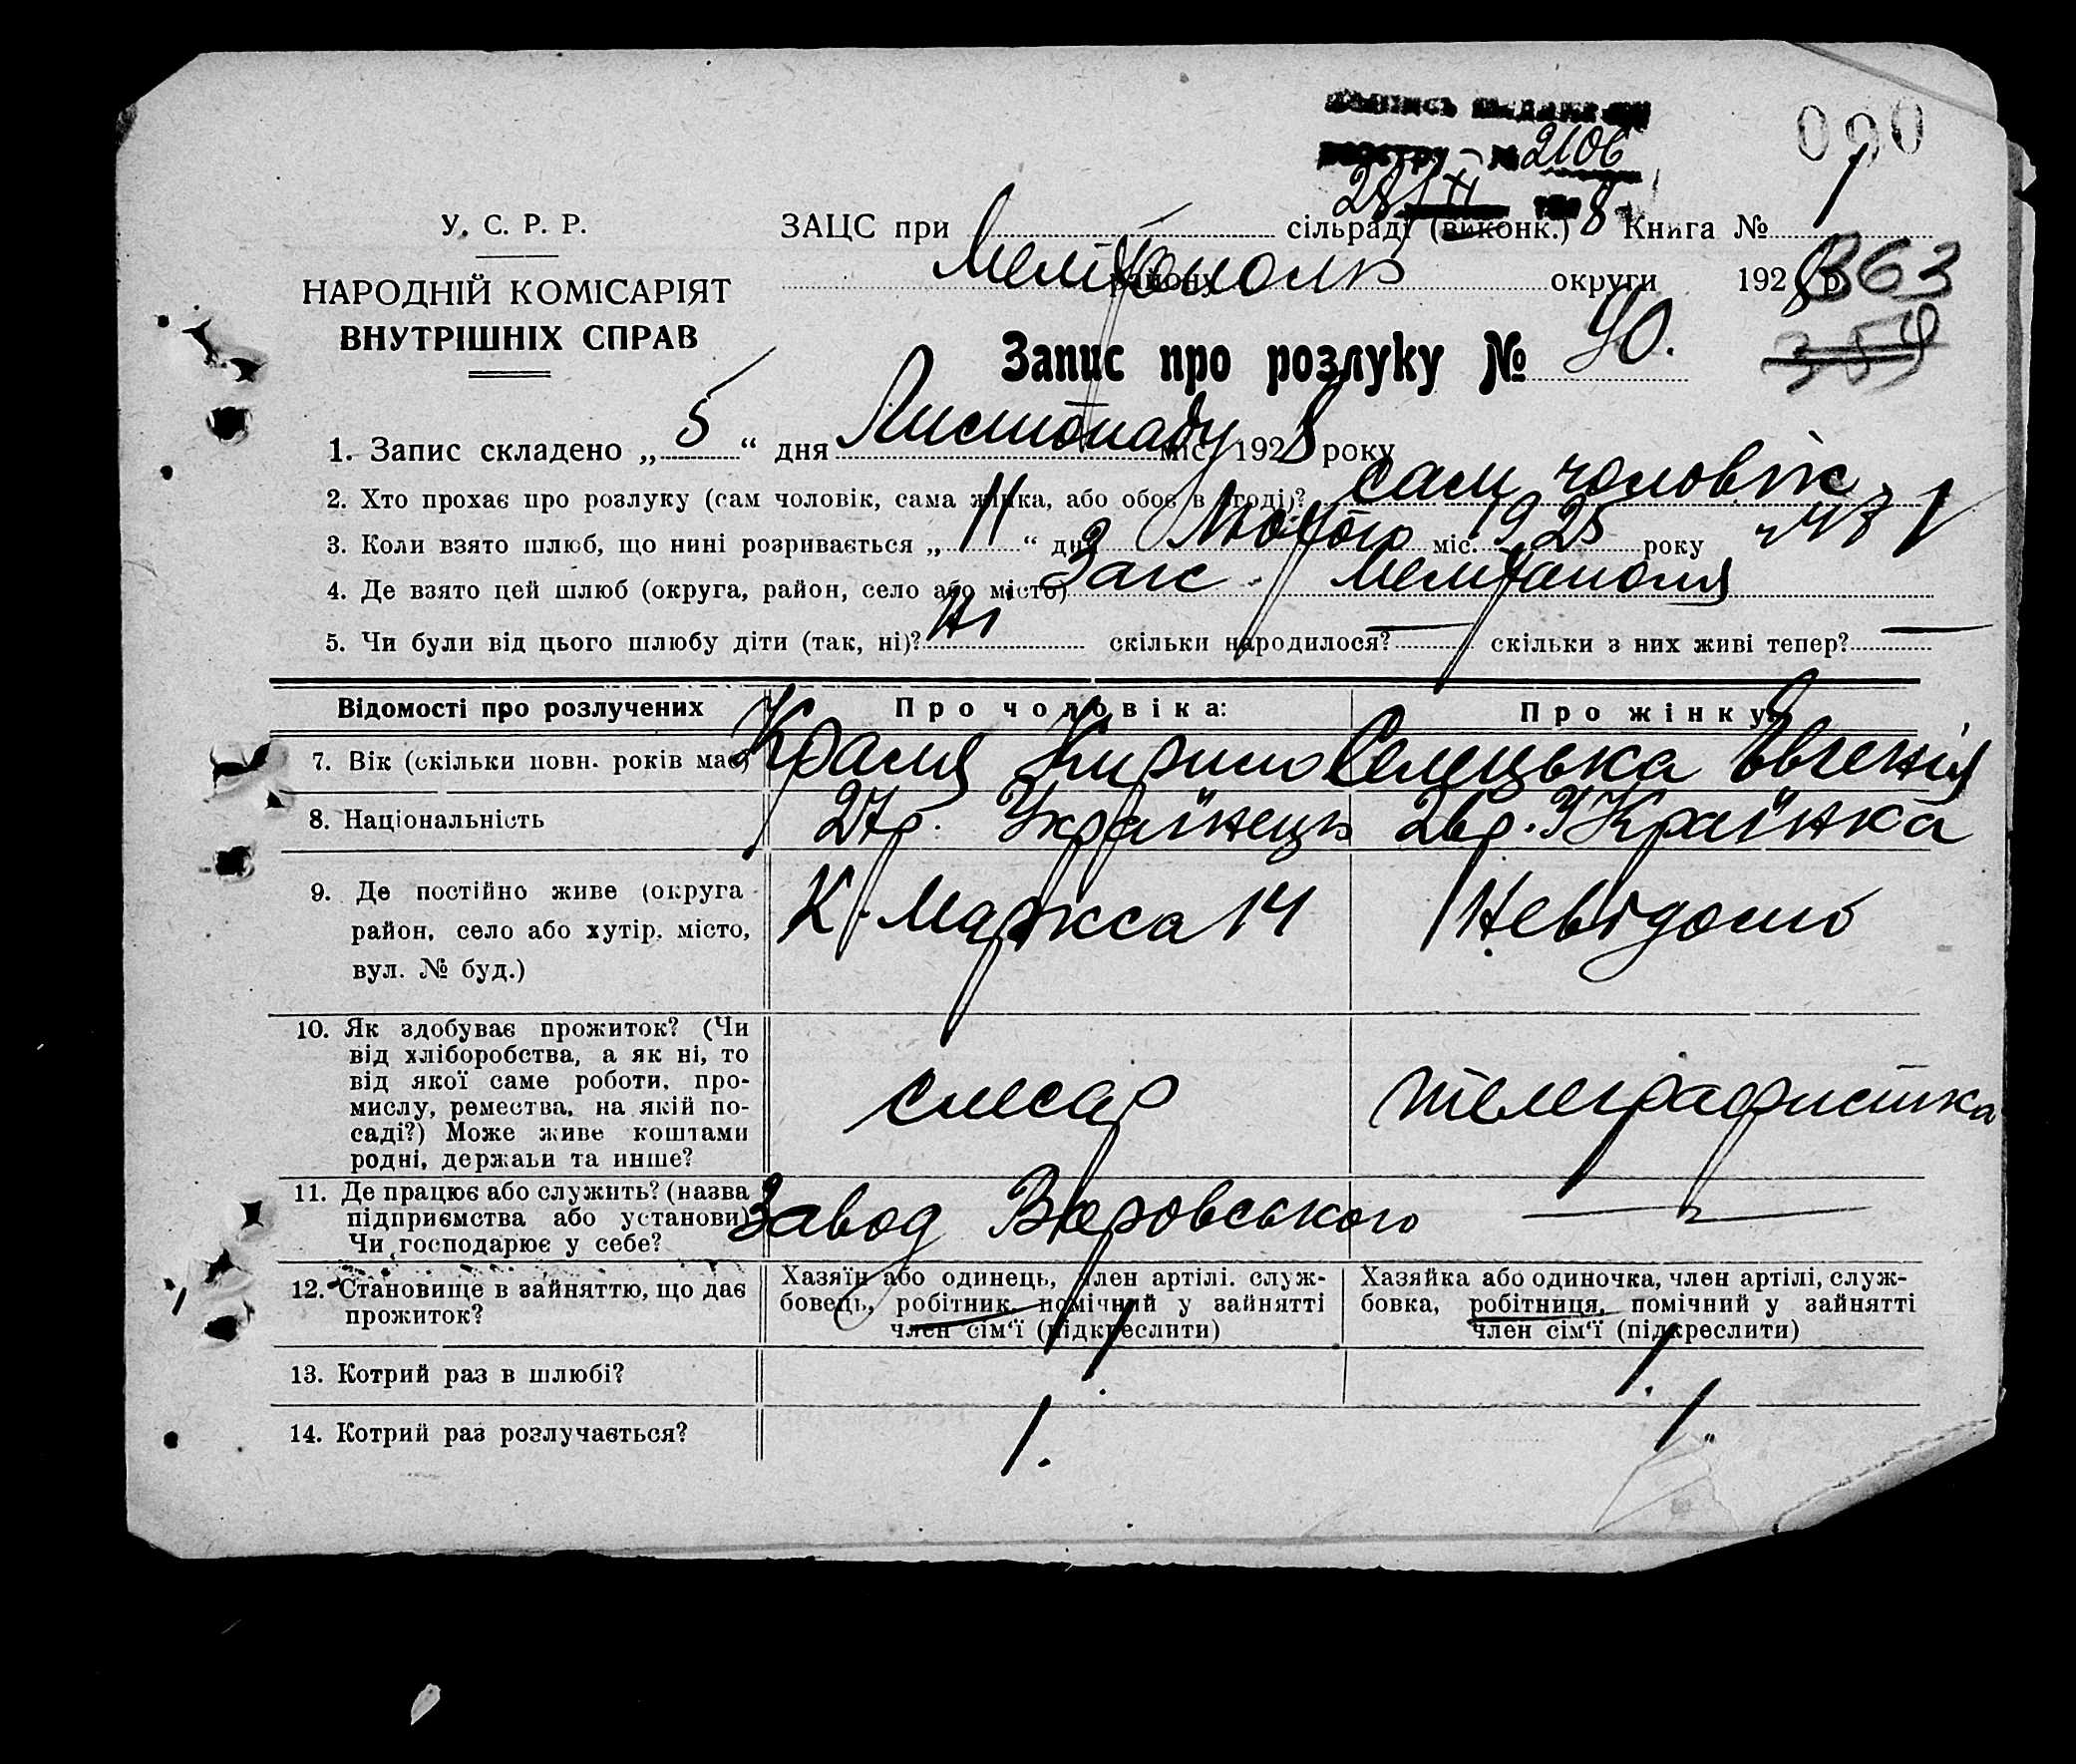 № 2106
28/XI 8
090
У. С. Р. Р.
НАРОДНІЙ КОМІСАРІЯТ
ВНУТРІШНІХ СПРАВ
ЗАЦС при сільраді (виконк.) Книга № 1
Мелітополь району округи 1928 р. 363
359
Запис про розлуку № 90.
1. Запис складено „ 5 “ дня Листопаду міс. 1928 року
2. Хто прохає про розлуку (сам чоловік, сама жінка, або обоє в згоді)? сам чоловік
3. Коли взято шлюб, що нині розривається „ 11 “ дня Лютого міс. 1925 року
4. Де взято цей шлюб (округа, район, село або місто) Загс Мелітополя
5. Чи були від цього шлюбу діти (так, ні)? Ні скільки народилося? — скільки з них живі тепер? —
Відомості про розлучених
Про чоловіка:
Про жінку:
7. Вік (скільки повн. років має)
Кирило
Селецька Євгенія
8. Національність
27р. Українець
26р. Українка
9. Де постійно живе (округа
район, село або хутір, місто,
вул. № буд.)
К. Маркса 14
Невідомо
10. Як здобуває прожиток? (Чи
від хліборобства, а як ні, то
від якої саме роботи, про-
мислу, ремества, на якій по-
саді?) Може живе коштами
родні, держави та инше?
слесар
телеграфистка
11. Де працює або служить? (назва
підприємства або установи)
Чи господарює у себе?
Завод Воровського
—
12. Становище в зайняттю, що дає
прожиток?
Хазяїн або одинець, член артілі. служ-
бовець, робітник, помічний у зайнятті
член сім'ї (підкреслити)
Хазяйка або одиночка, член артілі, служ-
бовка, робітниця, помічний у зайнятті
член сім'ї (підкреслити)
13. Котрий раз в шлюбі?
1.
1.
14. Котрий раз розлучається?
1.
1.